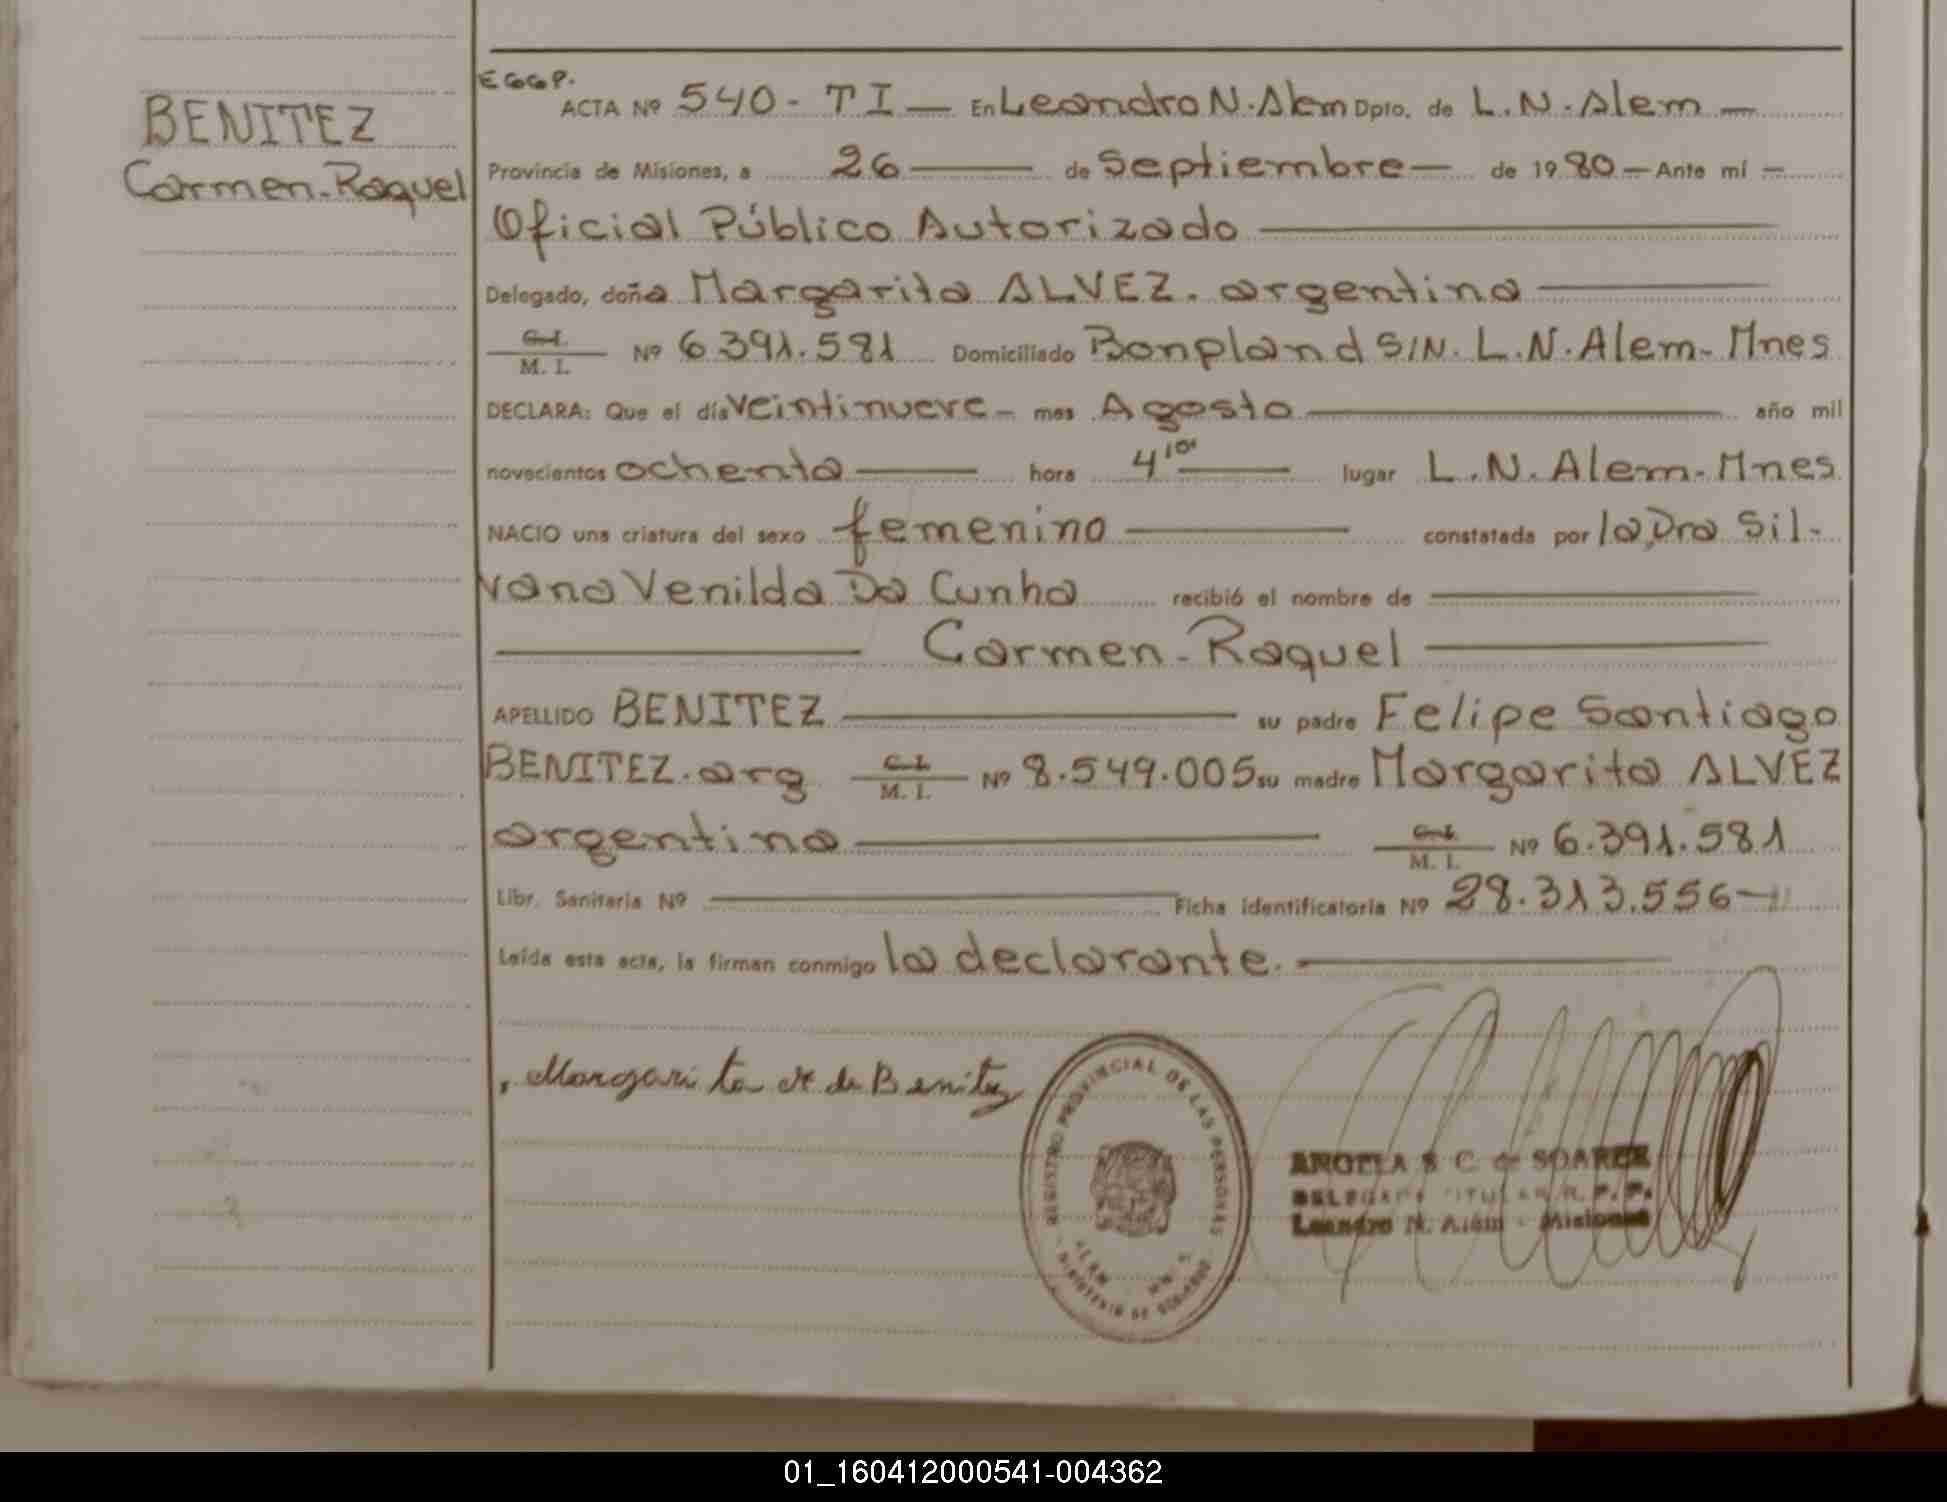 BENITEZ
Carmen-Raquel
EGGP.
ACTA Nº 540 - TI — En Leandro N. Alem Dpto. de L.N. Alem —
Provincia de Misiones, a 26 — de Septiembre — de 1980 — Ante mí —
Oficial Público Autorizado
Delegado, doña Margarita ALVEZ. argentina
C.I. M. I. Nº 6.391.581 Domiciliado Bonpland S/N. L.N. Alem- Mnes
DECLARA: Que el día veintinueve - mes Agosto año mil
novecientos ochenta hora 4¹⁰ˢ lugar L.N. Alem- Mnes
NACIO una criatura del sexo femenino constatada por la Dra Sil-
vana Venilda Da Cunha recibió el nombre de
Carmen-Raquel
APELLIDO BENITEZ su padre Felipe Santiago
BENITEZ. arg C.I. M. I. Nº 8.549.005 su madre Margarita ALVEZ
argentina C.I. M. I. Nº 6.391.581
Libr. Sanitaria Nº Ficha identificatoria Nº 28.313.556 —
Leída esta acta, la firman conmigo la declarante.
Margarita A de Benitez
REGISTRO PROVINCIAL DE LAS PERSONAS
MINISTERIO DE GOBIERNO
ANGELA S. C. de SOAREZ
DELEGADA TITULAR R. P. P.
Leandro N. Alem - Misiones
01_160412000541-004362